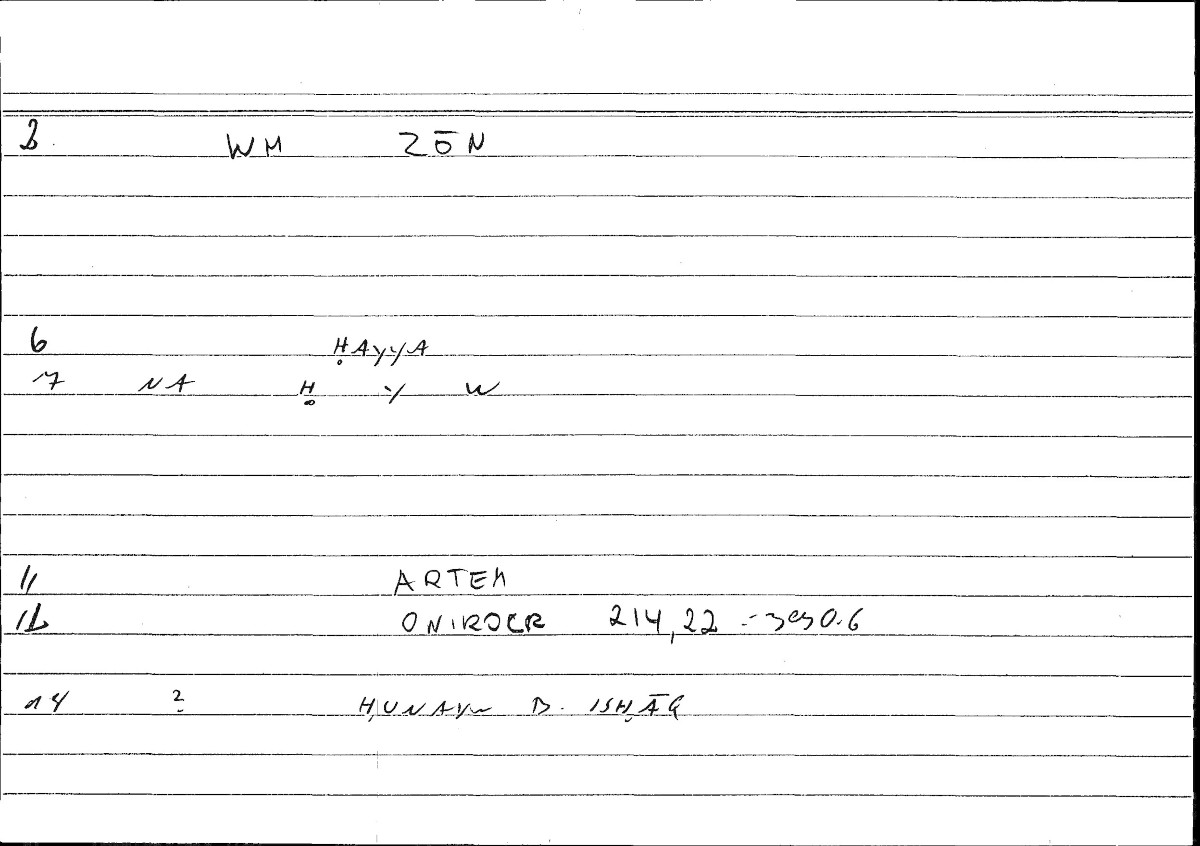 WM ZŌN
6 ḤAYYA
7 NA Ḥ Y W
11 ARTEM
12 ONIROCR 214,22
14 ? ḤUNAYN B. ISḤĀQ